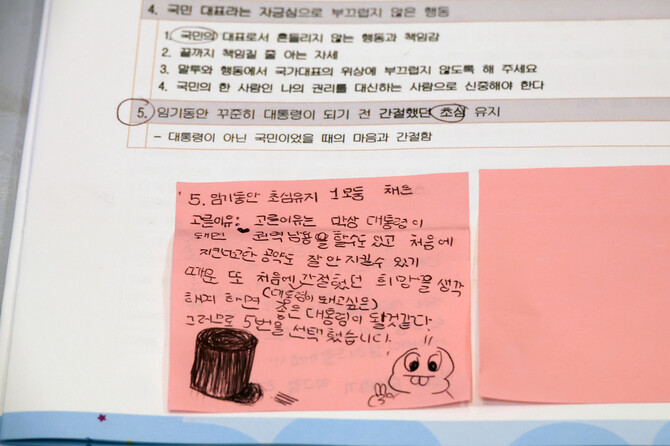 4. 국민 대표라는 자긍심으로 부끄럽지 않은 행동
1. 국민의 대표로서 흔들리지 않는 행동과 책임감
2. 끝까지 책임질 줄 아는 자세
3. 말투와 행동에서 국가대표의 위상에 부끄럽지 않도록 해 주세요
4. 국민의 한 사람인 나의 권리를 대신하는 사람으로 신중해야 한다
5. 임기동안 꾸준히 대통령이 되기 전 간절했던 초심 유지
- 대통령이 아닌 국민이었을 때의 마음과 간절함
5. 임기동안 초심유지 1모둠 채은
고른이유: 고른이유는 막상 대통령이
되면 권력남용을 할수도 있고 처음에
공약도 잘 안 지킬수 있기
때문 또 처음에 간절했던 희망을 생각
(대통령이 돼고싶은)
해지 하면 좋은 대통령이 될것같다.
그러므로 5번을 선택했습니다.!!